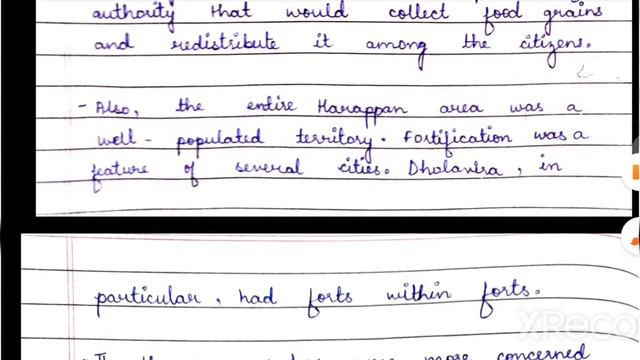 authority that would collect food grains
and redistribute it among the citizens.
- Also, the entire Harappan area was a
well - populated territory. Fortification was a
feature of several cities. Dholavira, in
particular, had forts within forts.
more concerned
XRecorder